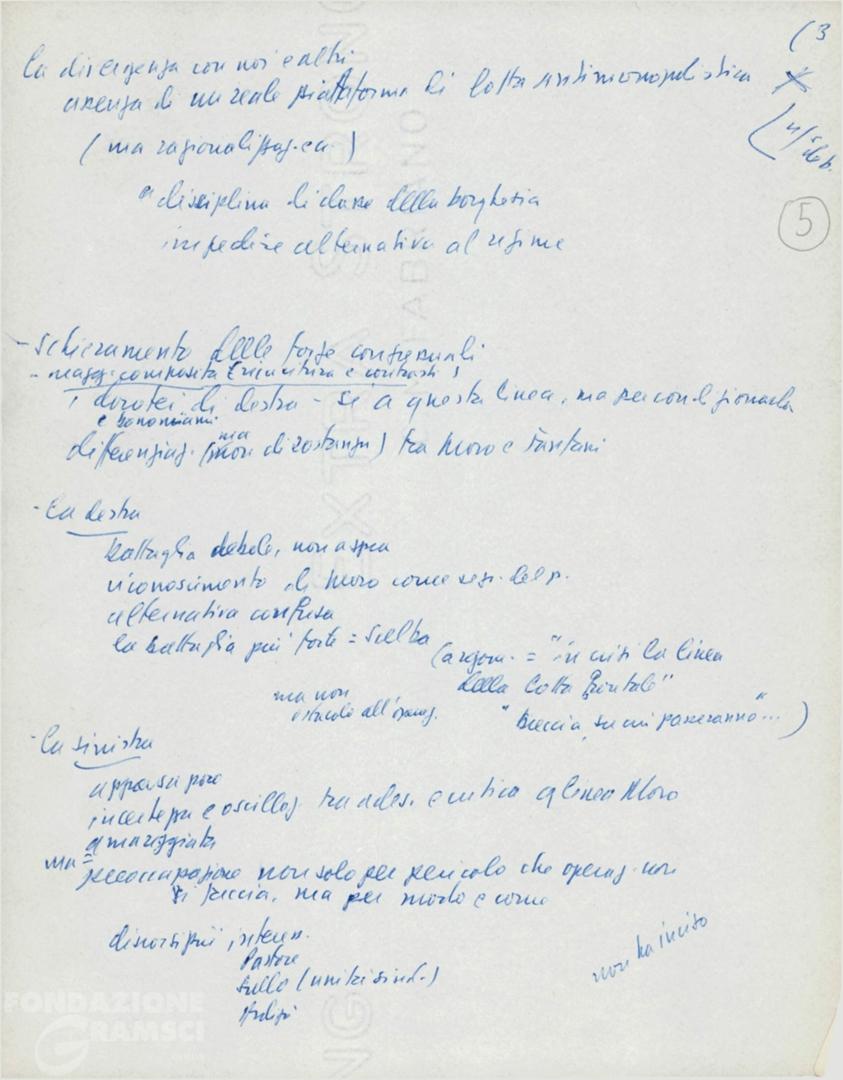 (3
la divergenza con noi e altri
assenza di un reale piattaforma di lotta antimonopolistica
(ma razionalizzaz. ca.)
5
"disciplina di classe della borghesia
impedire alternativa al regime
- Schieramento delle forze congressuali
- maggi. composita (rincintura e contrasti)
i dorotei di destra - si a questa linea, ma per con di gionada
e bonomiani
differenziaz. (ma non di sostanza) tra Moro e Fanfani
- la destra
battaglia debole, non aspra
riconoscimento di Moro come seg. del p.
alternativa confusa
la battaglia più forte = Scelba
(argom. = "in crisi la linea
della lotta frontale"
ma non
ostacolo all'operaz.
"breccia su cui passeranno"...)
- la sinistra
apparsa
incertezza e oscillaz. tra ades. e critica a linea Moro
amareggiata
ma = preoccupazione non solo per pericolo che operaz. non
si faccia, ma per modo e come
discorsi più interess.
Pastore
Sullo (unità sind.)
non ha inciso
EXTRA STRONG
FABRIANO
FONDAZIONE
GRAMSCI